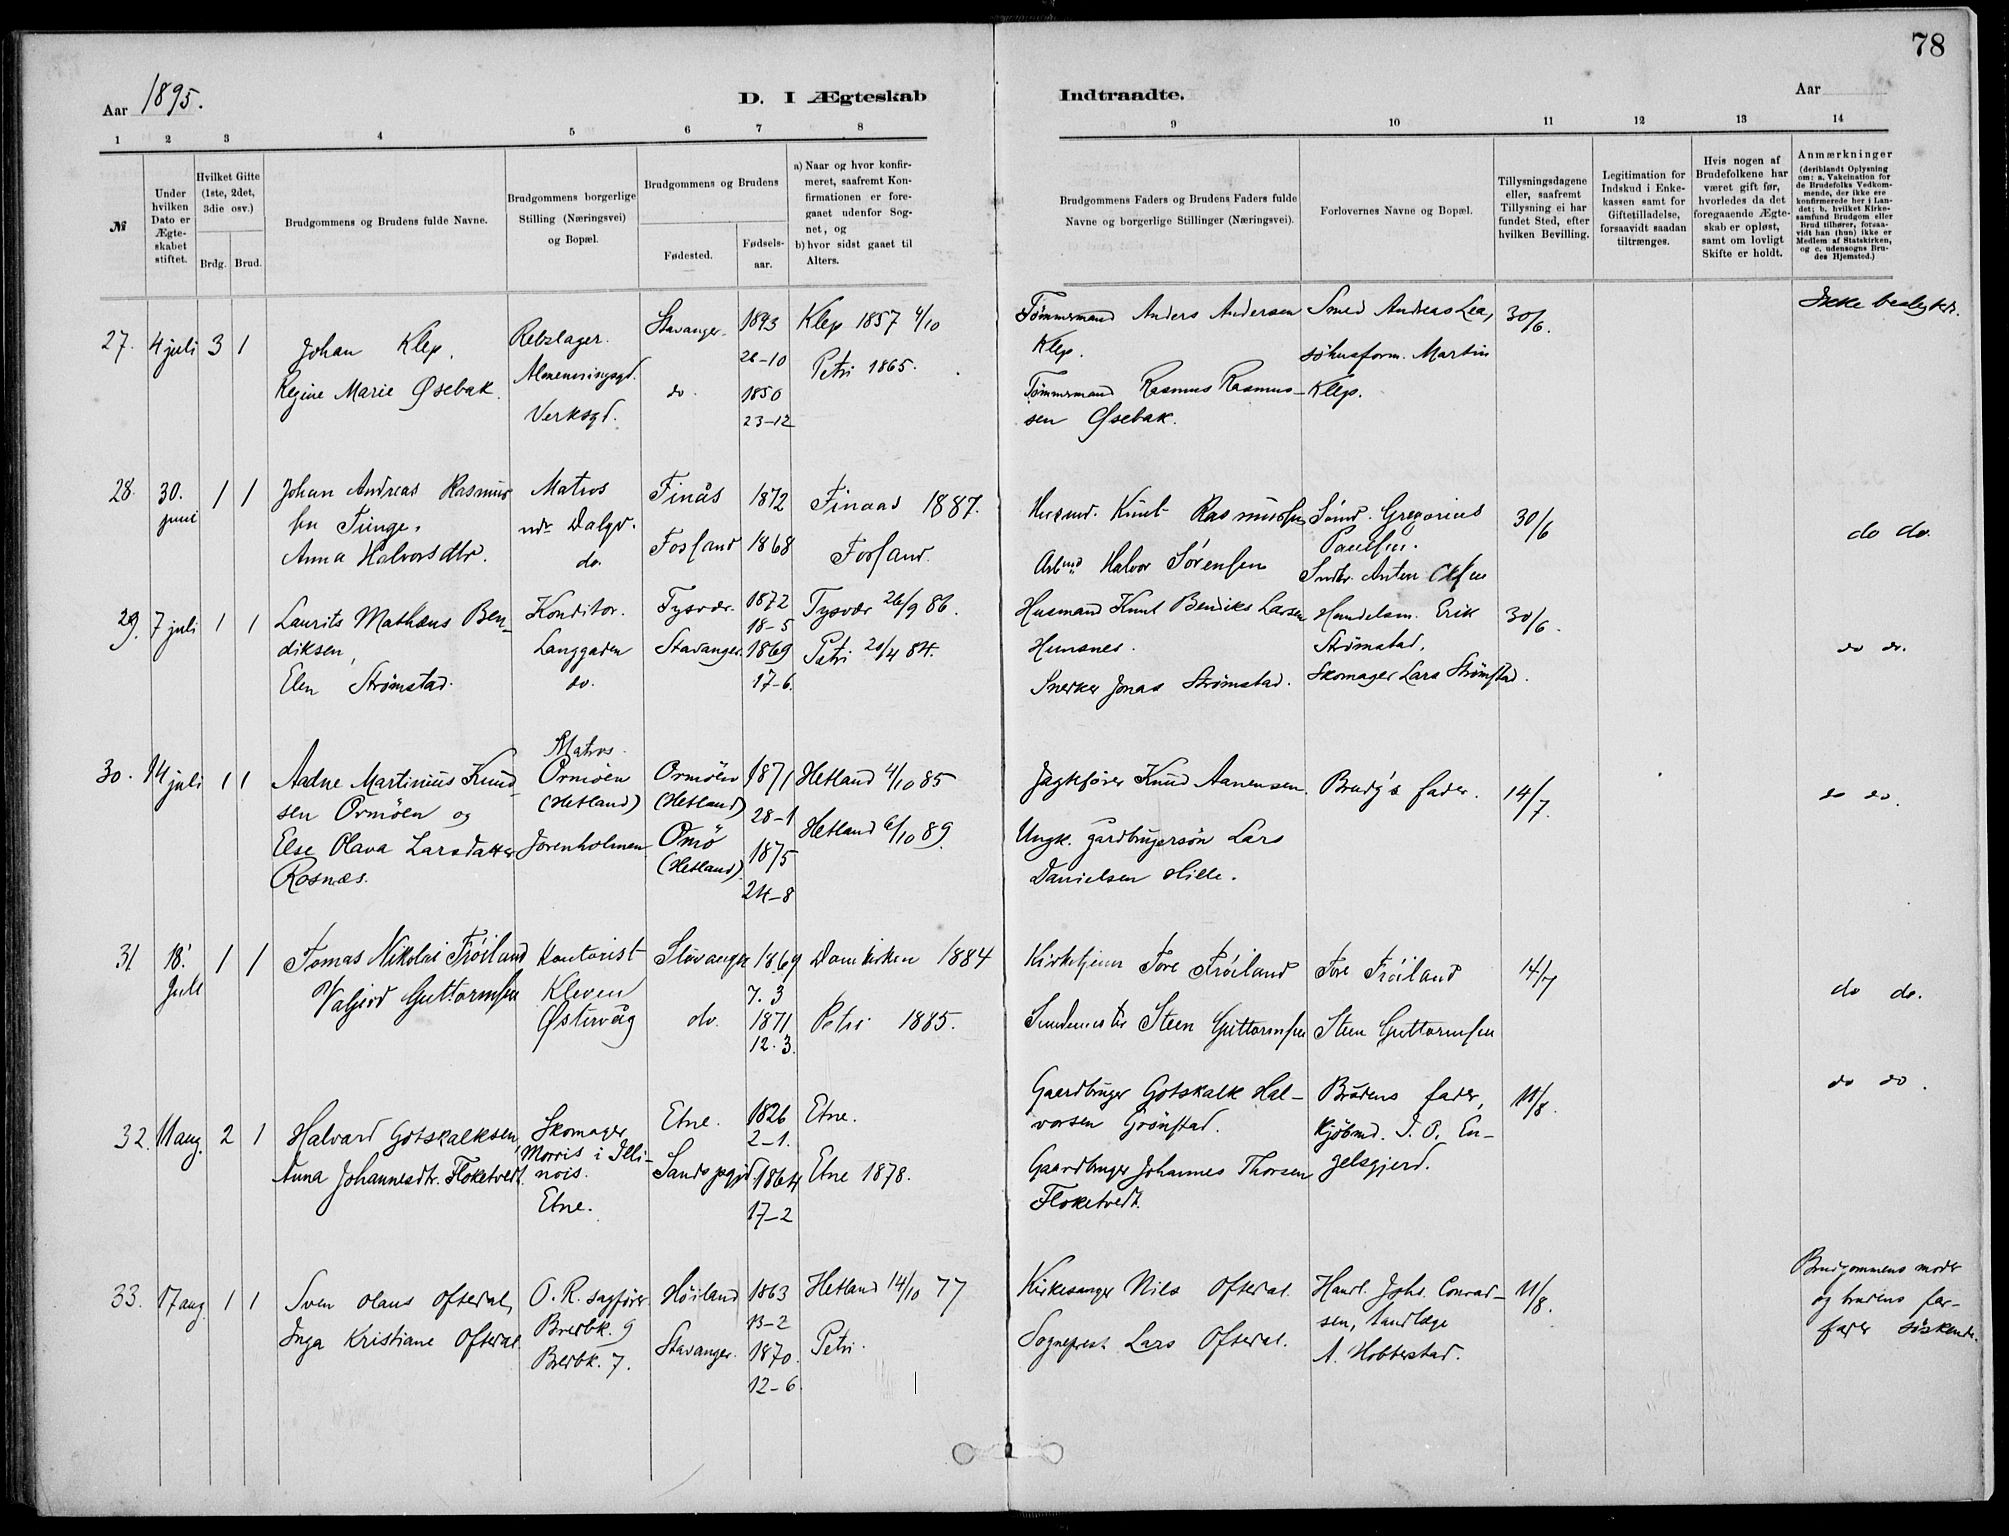 78
Aar 1895.
D. I Ægteskab
Indtraadte.
Aar
1 2 3 4 5 6 7 8 9 10 11 12 13 14
№
Under hvilken Dato er Ægteskabet stiftet.
Hvilket Gifte (1ste, 2det, 3die osv.)
Brdg. Brud.
Brudgommens og Brudens fulde Navne.
Brudgommens borgerlige Stilling (Næringsvei) og Bopæl.
Brudgommens og Brudens
Fødested.
Fødselsaar.
a) Naar og hvor konfirmeret, saafremt Konfirmationen er foregaaet udenfor Sognet, og
b) hvor sidst gaaet til Alters.
Brudgommens Faders og Brudens Faders fulde Navne og borgerlige Stillinger (Næringsvei).
Forlovernes Navne og Bopæl.
Tillysningsdagene eller, saafremt Tillysning ei har fundet Sted, efter hvilken Bevilling.
Legitimation for Indskud i Enkekassen samt for Giftetilladelse, forsaavidt saadan tiltrænges.
Hvis nogen af Brudefolkene har været gift før, hvorledes da det foregaaende Ægteskab er opløst, samt om lovligt Skifte er holdt.
Anmærkninger
(deriblandt Oplysning om: a. Vakcination for de Brudefolks Vedkommende, der ikke ere konfirmerede her i Landet; b. hvilket Kirkesamfund Brudgom eller Brud tilhører, forsaavidt han (hun) ikke er Medlem af Statskirken, og c. udensogns Brudes Hjemsted.)
27. 4 juli 3 1
Johan Klep.
Regine Marie Øsebak.
Rebslager.
Almenningsgd.
Verksgd.
Stavanger.
do.
1843
26-10
1850
23-12
Klep 1857 4/10
Petri 1865.
Tømmermand Anders Andersen
Klep.
Tømmermand Rasmus Rasmus-
sen Øsebak.
Smed Andreas Lea,
søhusform. Martin
Klep.
30/6.
Ikke beslegtede.
28. 30. juni 1 1
Johan Andreas Rasmus
sen Tunge.
Anna Halvorsdtr.
Matros
ndr Dalgd.
do.
Finås
Fosfand
1872
1868
Finaas 1887.
Fosfand.
Husmd. Knut Rasmussen
Arbmd Halvor Sørensen
Sømd. Gregorius
Paulsen.
Snedkr. Anten Olsen
30/6
do do.
29. 7 juli 1 1
Laurits Mathæus Ben-
diksen,
Elen Strømstad.
Konditor.
Langgaden
do.
Tysvær.
Stavanger.
1872
18-5
1869
17-6.
Tysvær 26/9 86.
Petri 20/4 84.
Husmand Knut Bendiks Larsen
Hunsnes.
Snerker Jonas Strømstad.
Handelsm. Erik
Strømstad.
Skomager Lars Strømstad.
30/6.
do do.
30. 14 juli 1 1
Aadne Martinius Knud-
sen Ormøen og
Else Olava Larsdatter
Rosnæs.
Matros.
Ormøen
(Hetland)
Jorenholmen
Ormøen
(Hetland)
Omø
(Hetland).
1871
28-1
1875
24-8
Hetland 4/10 85
Hetland 6/10 89.
Jagtefører Knud Aanensen.
Ungk. gardbrugersøn Lars
Danielsen Hille.
Brudg's fader.
14/7.
do do.
31 18. Juli 1 1
Tomas Nikolai Frøiland
Valgjerd Guttormsen
Kontorist
Kleven
Østervåg
Stavanger
do.
1869
7. 3
1871
12. 3.
Domkirken 1884
Petri 1885.
Kirketjener Tore Frøiland
Steen Guttormsen
Tore Frøiland
Steen Guttormsen
14/7
do do.
32. 11 aug. 2 1
Halvard Gotskalksen,
Anna Johannesdtr. Floketvedt.
Skomager
Morris i Illi-
nois.
Etne.
Etne.
Sands pgjd.
1826
2-1.
1864
17-2
Etne.
Etne 1878.
Gaardbruger Gotskalk Hal-
vorsen Grönstad.
Gaardbruger Johannes Thorsen
Floketvedt.
Brudens fader,
Kjøbmd. I. O. En-
gelsgjerd.
11/8.
do do.
33. 17 aug. 1 1
Sven Olaus Oftedal,
Inga Kristiane Oftedal.
O. R. sagfører
Bredbk. 9
Bredbk. 7.
Høiland
Stavanger.
1863
13-2
1870.
12-6.
Hetland 14/10 77
Petri.
Kirkesanger Nils Oftedal.
Sogneprest Lars Oftedal.
Handl. Johs. Conrad-
sen, tandlæge
A. Hobberstad.
11/8.
Brudgommens moder
og brudens far-
fader søskende.